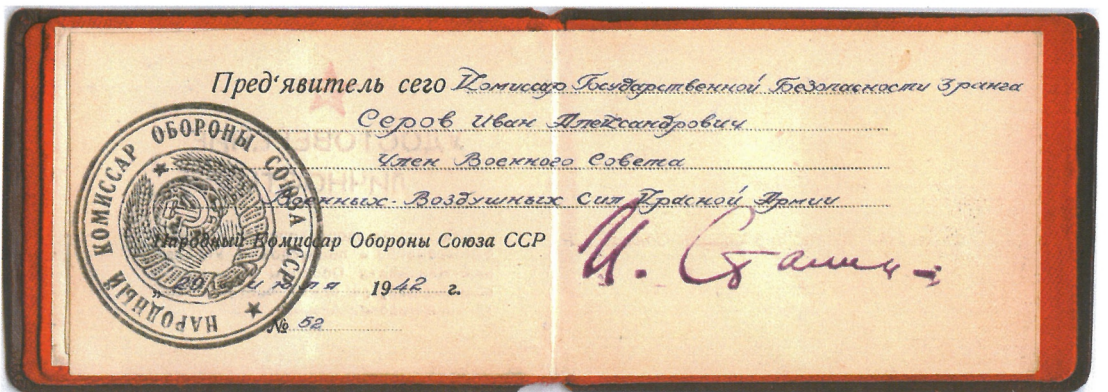 Пред'явитель сего Комиссар Государственной Безопасности 3 ранга
Серов Иван Александрович
Член Военного Совета
Военных-Воздушных Сил Красной Армии
Народный Комиссар Обороны Союза ССР
И. Сталин
июля 1942 г.
№ 52
НАРОДНЫЙ КОМИССАР ОБОРОНЫ СОЮЗА ССР